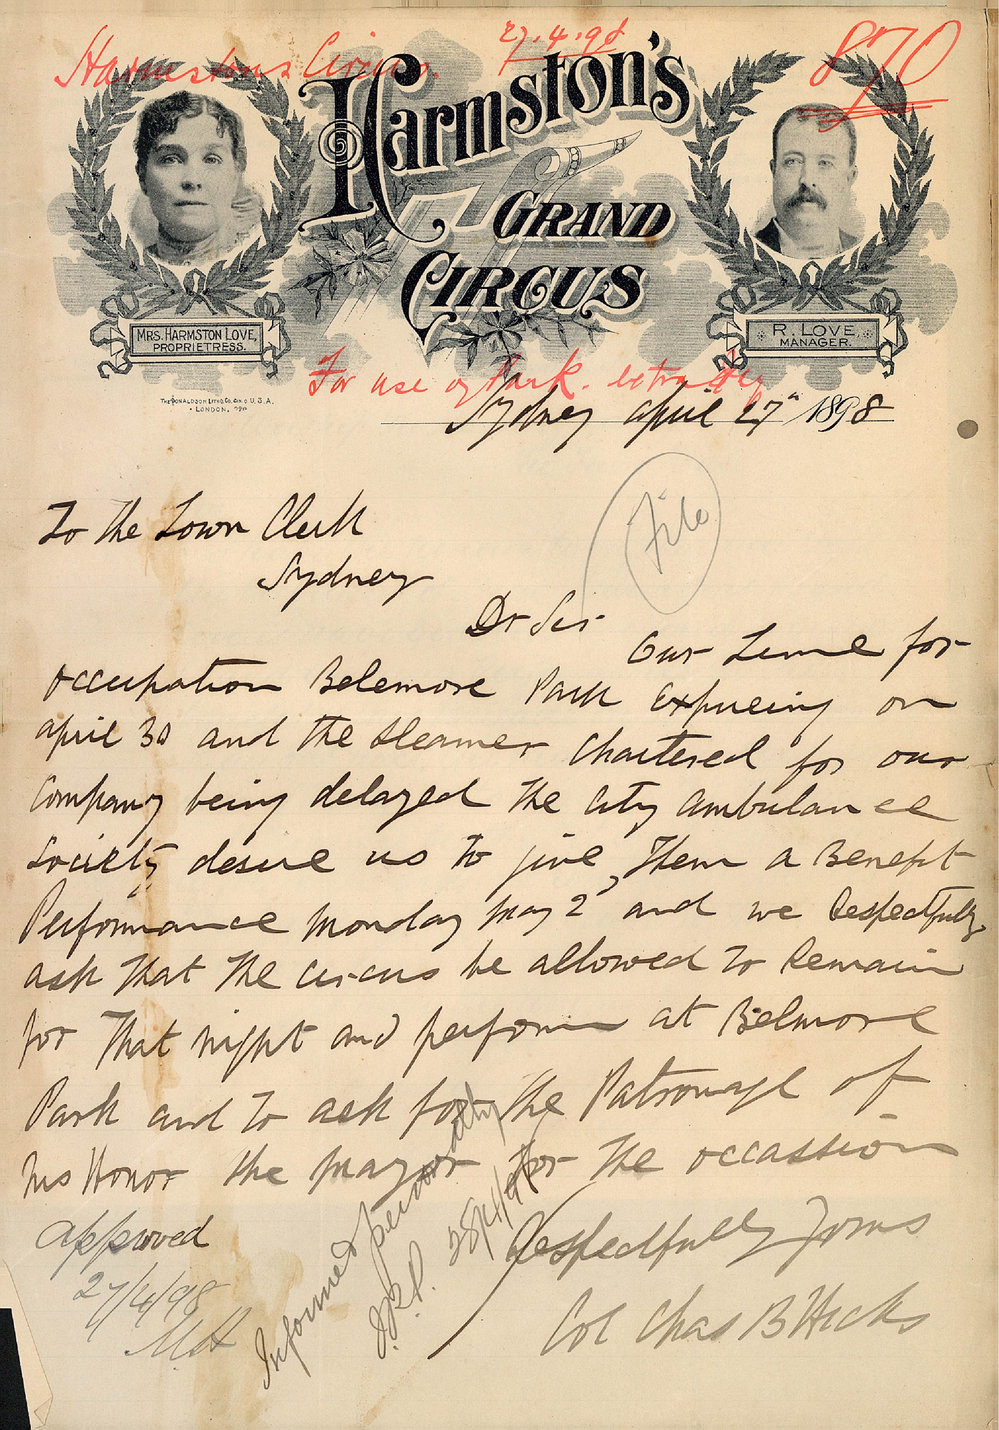 Harmston's Circus.
27.4.98
870
HARMSTON'S
GRAND
CIRCUS
MRS. HARMSTON LOVE,
PROPRIETRESS.
R. LOVE.
MANAGER.
THE DONALDSON LITHO. CO. CIN. O. U.S.A.
• LONDON.
For use of Park. extra day
Sydney april 27th 1898
File
To the Town Clerk
Sydney
Dr Sir
Our Time for
occupation Belemore Park Expireing on
april 30 and the steamer Chartered for our
Company being delayed the City ambulance
Society desire us to give them a Benefit
Performance Monday May 2d and we Respectfully
ask that the circus be allowed to Remain
for that night and perform at Belmore
Park and to ask for the Patronage of
his Honor the mayor for the occassion
approved
27/4/98
Informed personally
28/4/98
Respectfully Yours
Col Chas B Hicks